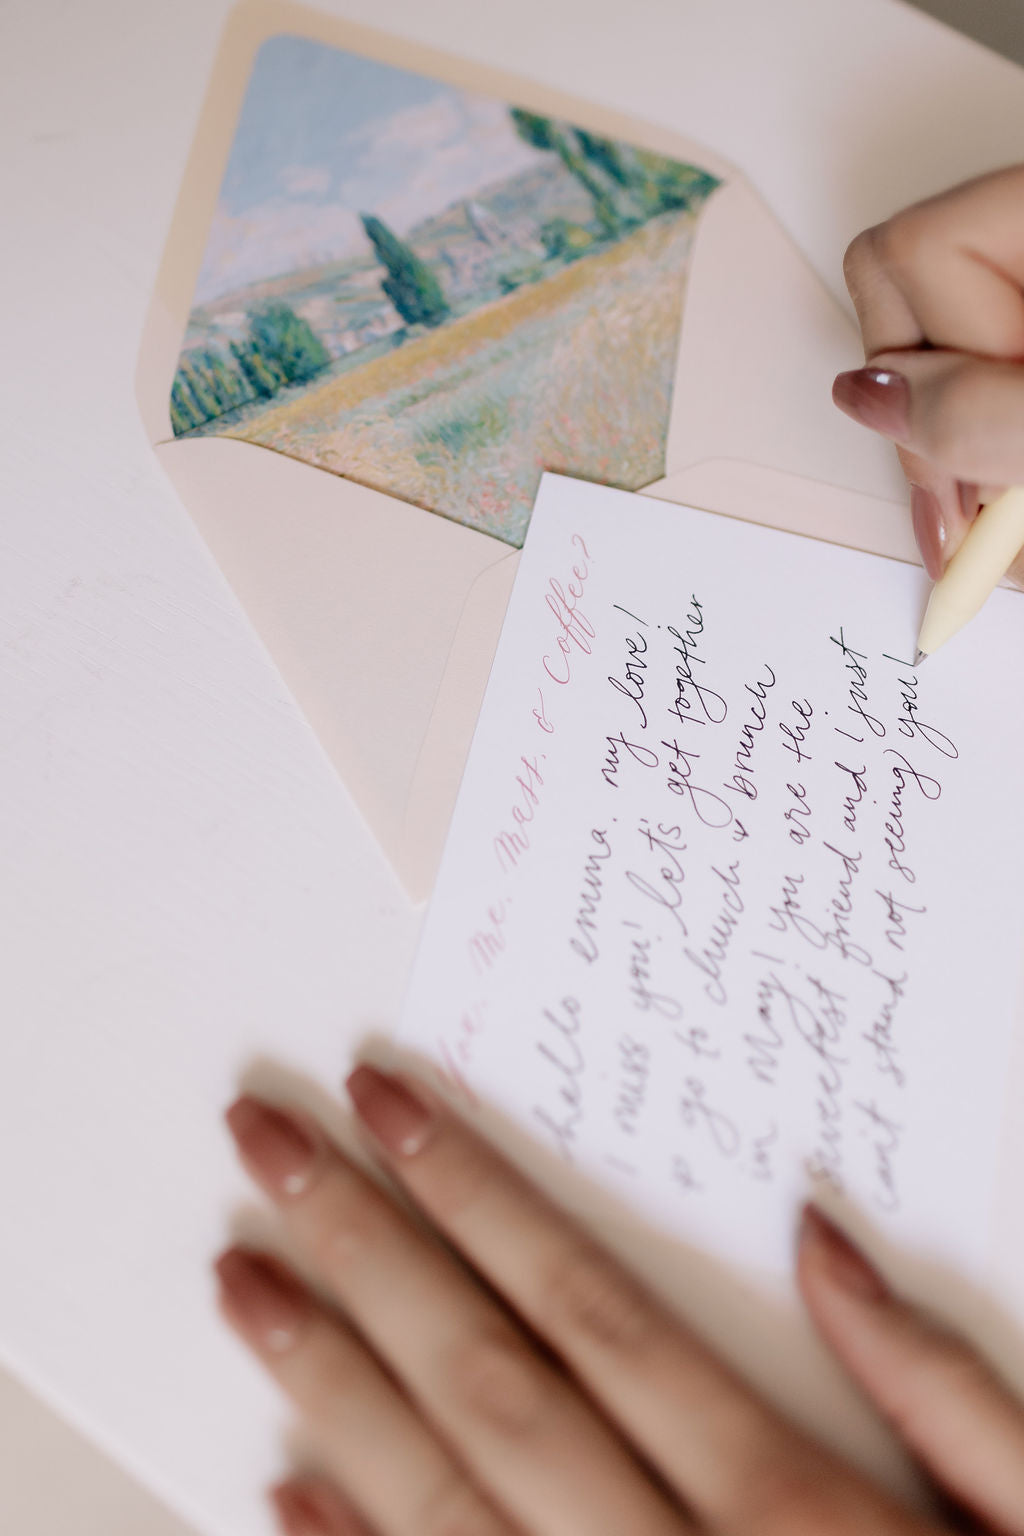 You. Me. Mass. & Coffee?
hello emma. my love!
I miss you! let's get together
& go to church & brunch
in May! You are the
sweetest friend and I just
can't stand not seeing you!